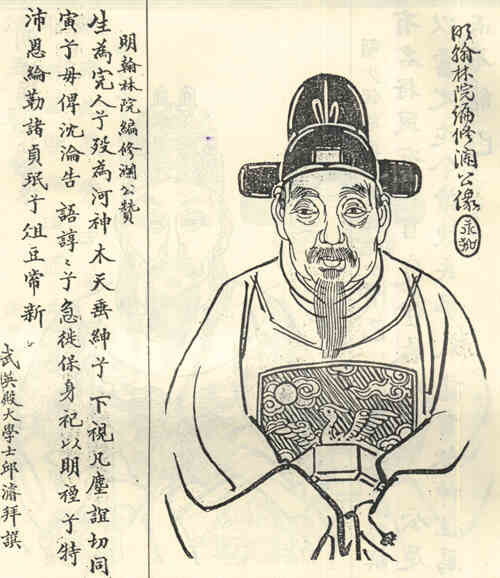 明翰林院編修瀾公像
明翰林院編修瀾公贊
生為完人兮歿為河神木天垂紳兮下視凡塵誼切同
寅兮毋俾沈淪告語諄〻兮急徙保身祀以明禋兮特
沛恩綸勒諸貞珉兮俎豆常新
武英殿大學士邱濬拜撰